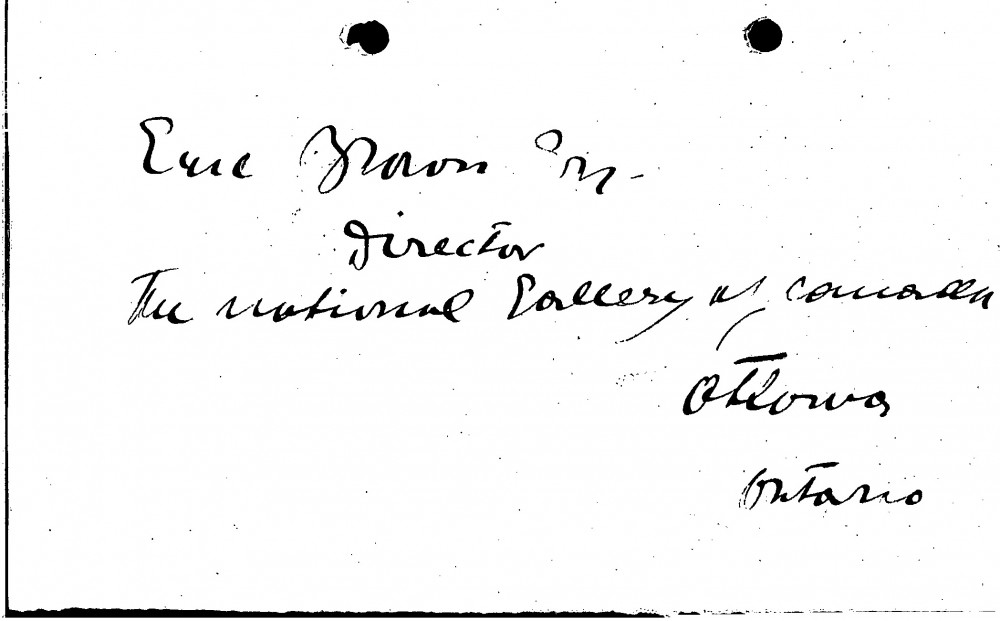 Eric Brown Esq.
Director
The National Gallery of Canada
Ottowa
Ontario